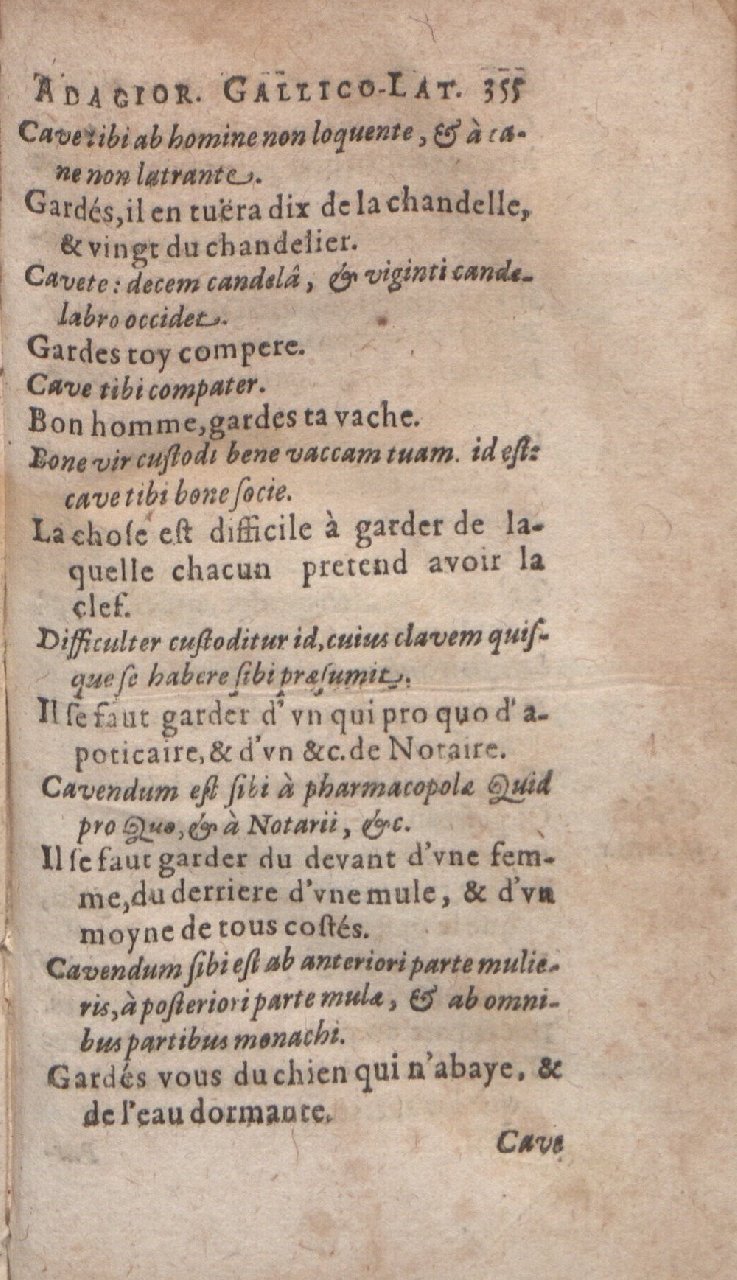 ADAGIOR. GALLICO-LAT. 355
Cave tibi ab homine non loquente, & à ca-
ne non latrante.
Gardés, il en tuëra dix de la chandelle,
& vingt du chandelier.
Cavete: decem candelâ, & viginti cande-
labro occidet.
Gardes toy compere.
Cave tibi compater.
Bon homme, gardes ta vache.
Bone vir custodi bene vaccam tuam. id est:
cave tibi bone socie.
La chose est difficile à garder de la-
quelle chacun pretend avoir la
clef.
Difficulter custoditur id, cuius clavem quis-
que se habere sibi præsumit.
Il se faut garder d'vn qui pro quo d'a-
poticaire, & d'vn &c. de Notaire.
Cavendum est sibi à pharmacopolæ Quid
pro Quo, & à Notarii, &c.
Il se faut garder du devant d'vne fem-
me, du derriere d'vne mule, & d'vn
moyne de tous costés.
Cavendum sibi est ab anteriori parte mulie-
ris, à posteriori parte mulæ, & ab omni-
bus partibus monachi.
Gardés vous du chien qui n'abaye, &
de l'eau dormante.
Cave